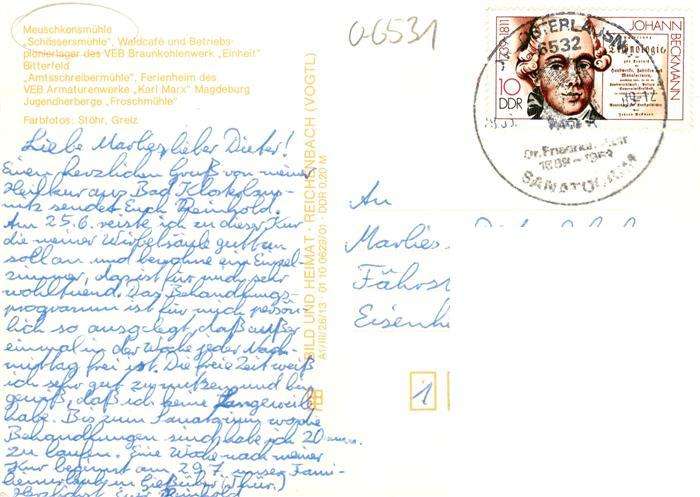 Meuschkensmühle
„Schössersmühle", Waldcafé und Betriebs-
pionierlager des VEB Braunkohlenwerk „Einheit"
Bitterfeld
„Amtsschreibermühle", Ferienheim des
VEB Armaturenwerke „Karl Marx" Magdeburg
Jugendherberge „Froschmühle"
Farbfotos: Stöhr, Greiz
Liebe Marlies, lieber Dieter!
Einen herzlichen Gruß von meiner
Heilkur aus Bad Klosterlaus-
nitz sendet Euch Reinhold.
Am 25.6. reiste ich zu dieser Kur
die meiner Wirbelsäule gut tun
soll an und bewohne ein Einzel-
zimmer, das ist für mich sehr
wohltuend. Das Behandlungs-
programm ist für mich persön-
lich so ausgelegt, daß außer
einmal in der Woche jeder Nach-
mittag frei ist. Die freie Zeit weiß
ich sehr gut zu nutzen und bin
gewiß, daß ich keine Langeweile
habe. Bis zum
Behandlungen sind habe ich 20
zu laufen. Eine Woche nach meiner
Kur beginnt am 29.7. unser Fami-
lienurlaub in Gießübel (Thür.)
Herzlichst Euer Reinhold
BILD UND HEIMAT · REICHENBACH (VOGTL)
A1/III/26/13 01 10 0629/01 · DDR 0,20 M
0-6531
JOHANN BECKMANN
1739-1811
Technologie
10
DDR
6532
Dr. Friedrich
SANATORIUM
An
Marlies
Fährst
Eisenh
1